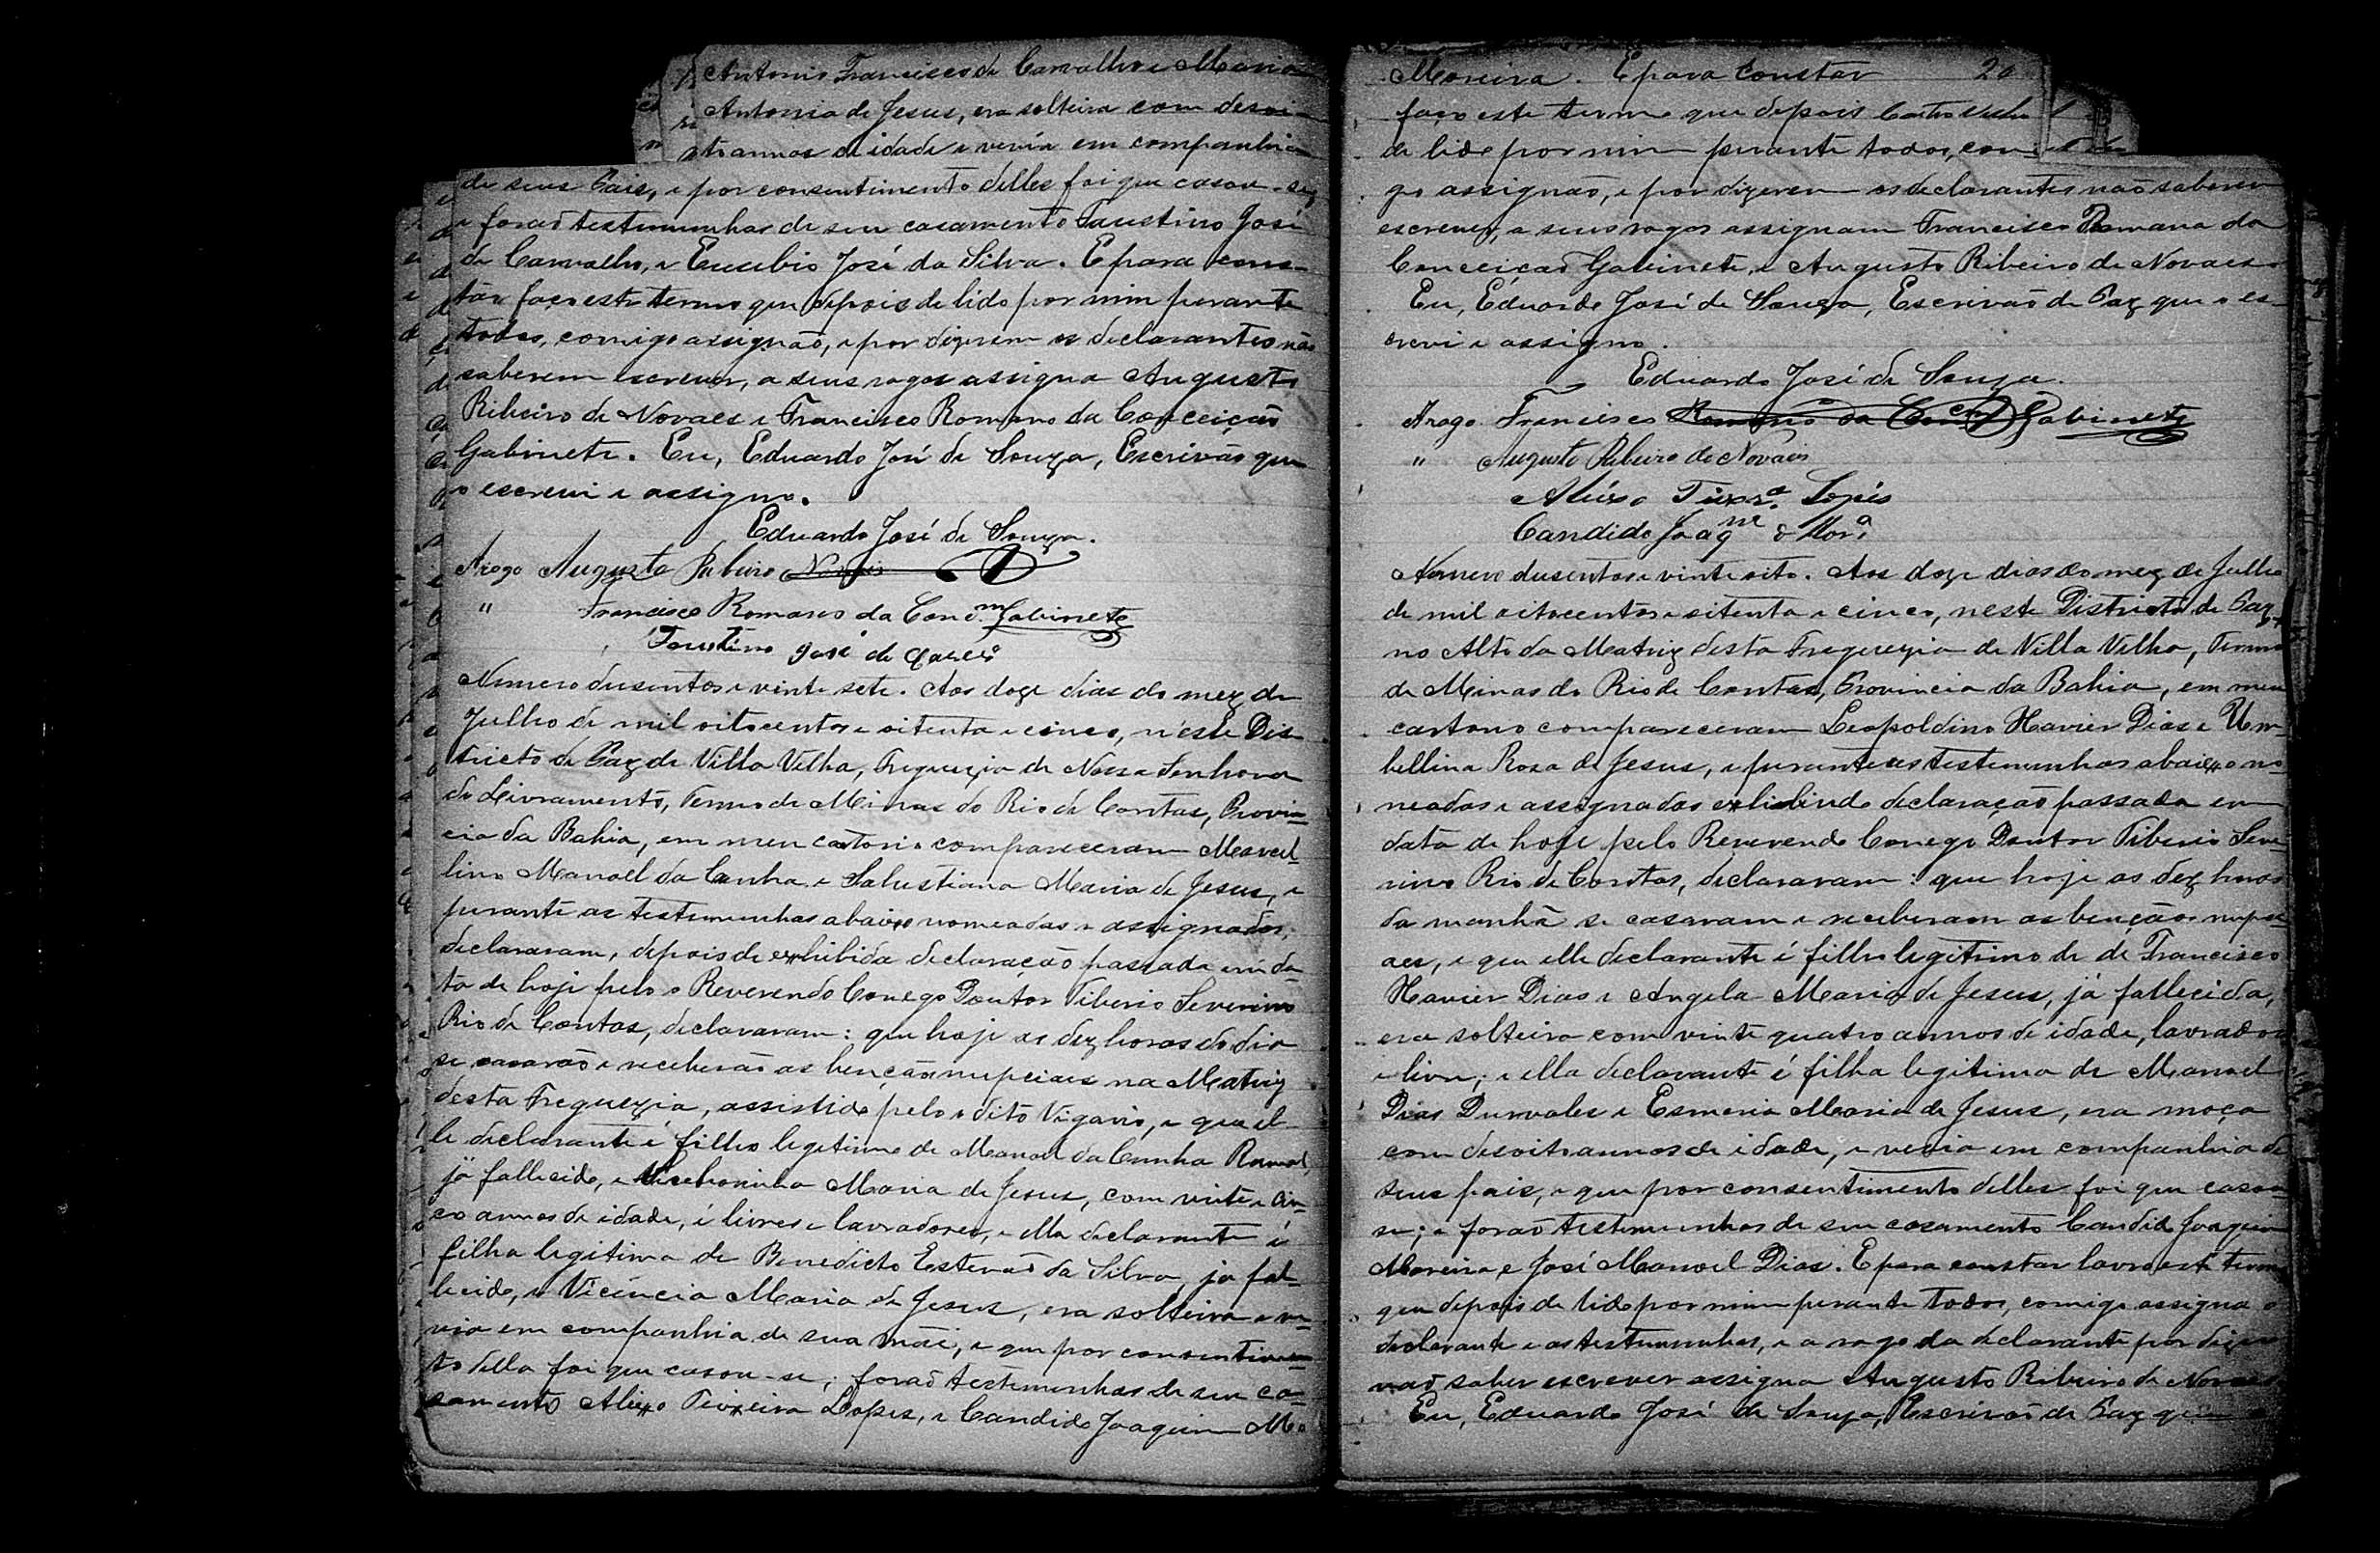 Antonio Francisco de Carvalho e Maria
Antonia de Jesus, era solteira com desoi-
to annos de idade e vivia em companhia
de seus Pais, e por consentimento delles foi que casou-se,
e forão testemunhas de seu casamento Faustino José
de Carvalho, e Eusebio José da Silva. E para cons-
tar faço este termo que depois de lido por mim perante
todos, comigo assignão, e por dizerem os declarantes não
saberem escrever, a seus rogos assigna Augusto
Ribeiro de Novaes e Francisco Romano da Conceição
Gabinete. Eu, Eduardo José de Souza, Escrivão que
o escrevi e assigno.
Eduardo José de Souza.
Arogo Augusto Ribeiro Novais
" Francisco Romano da Conc.m Gabinete
Faustino José de
Numero dusentos e vinte sete. Aos doze dias do mez de
Julho de mil oitocentos e oitenta e cinco, n'este Dis-
tricto de Paz de Villa Velha, Freguezia de Nossa Senhora
do Livramento, Termo de Minas do Rio de Contas, Provin-
cia da Bahia, em meu cartorio compareceram Marcel-
lino Manoel da Cunha e Salustiana Maria de Jesus, e
perante as testemunhas abaixo nomeadas e assignados,
declararam, depois de exhibida declaração passada em da-
ta de hoje pelo o Reverendo Conego Doutor Tiberio Severino
Rio de Contas, declararam: que hoje as dez horas do dia
se casarão e receberão as bençãos nupciaes na Matriz
desta Freguezia, assistido pelo o dito Vigario, e que el-
le declarante é filho legitimo de Manoel da Cunha
já fallecido, e Maria de Jesus, com vinte e cin-
co annos de idade, é livres e lavradores, e ella declarante é
filha legitima de Benedicto Estevão da Silva, já fal-
lecido, e Vicencia Maria de Jesus, era solteira e vi-
via em companhia de sua mãi, e que por consentimen-
to della foi que casou-se; forão testemunhas de seu ca-
samento Aleixo Teixeira Lopes, e Candido Joaquim Mo
Moreira. E para constar 20
faço este termo que depois
de lido por mim perante todos, comi-
go assignão, e por dizerem os declarantes não saberem
escrever, a seus rogos assignam Francisco Romano da
Conceição Gabinete, e Augusto Ribeiro de Novaes
Eu, Eduardo José de Souza, Escrivão de Paz que o es-
crevi e assigno.
Eduardo José de Souza.
Arogo Francisco Romano da Conc.m Gabinete
" Augusto Ribeiro de Novais
Aleixo Teixr.a Lopes
Candido Joaq.m e Mor.a
Numero dusentos e vinte oito. Aos doze dias do mez de Julho
de mil oitocentos e oitenta e cinco, neste Districto de Paz
no Alto da Matriz desta Freguezia de Villa Velha, Termo
de Minas do Rio de Contas, Provincia da Bahia, em meu
cartorio compareceram Leopoldino Xavier Dias e Um-
bellina Rosa de Jesus, e perante as testemunhas abaixo no-
meadas e assignadas exhibindo declaração passada em
data de hoje pelo Reverendo Conego Doutor Tiberio Seve-
rino Rio de Contas, declararam: que hoje as dez horas
da manhã se casaram e receberam as bençãos nupci-
aes, e que elle declarante é filho legitimo de de Francisco
Xavier Dias e Angela Maria de Jesus, já fallecida,
era solteiro com vinte quatro annos de idade, lavrador
e livre; e ella declarante é filha legitima de Manoel
Dias Durvales e Esmeria Maria de Jesus, era moça
com desoito annos de idade, e vevia em companhia de
seus pais, e que por consentimento delles foi que casou-
se; e forão testemunhas de seu casamento Candido Joaquim
Moreira e José Manoel Dias. E para constar lavro este termo
que depois de lido por mim perante todos, comigo assigna o
declarante e as testemunhas, e a rogo da declarante por dizer
não saber escrever assigna Augusto Ribeiro de Novaes
Eu, Eduardo José de Souza, Escrivão de Paz que